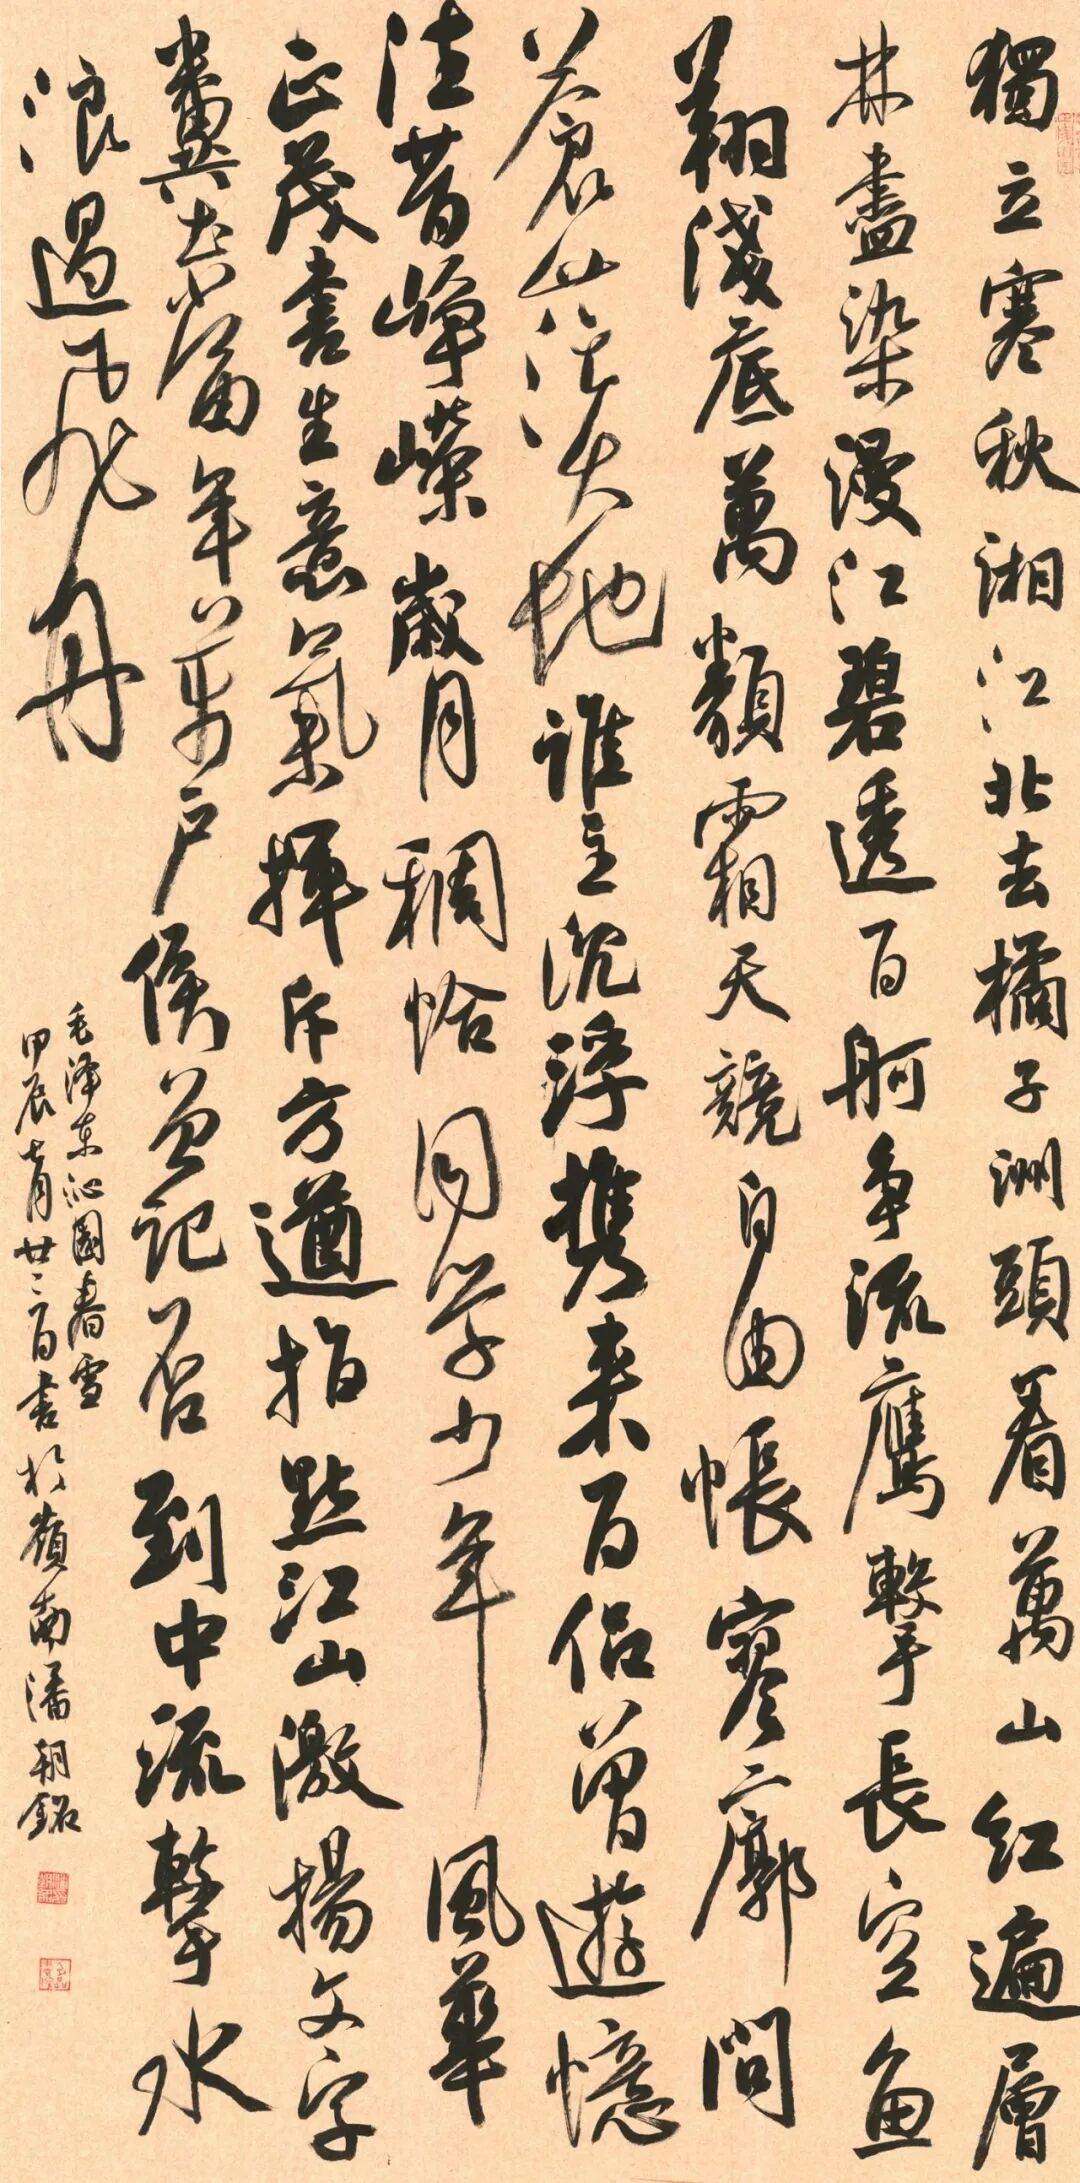 獨立寒秋湘江北去橘子洲頭看萬山紅遍層
林盡染漫江碧透百舸争流鷹擊長空魚
翔淺底萬類霜天競自由悵寥廓問
蒼茫大地誰主沉浮携来百侣曾遊憶
往昔崢嶸歲月稠恰同学少年風華
正茂書生意氣揮斥方遒指點江山激揚文字
糞土當年萬户侯曾記否到中流擊水
浪遏飛舟
毛澤东沁園春雪
甲辰七月廿二日書於嶺南潘銘